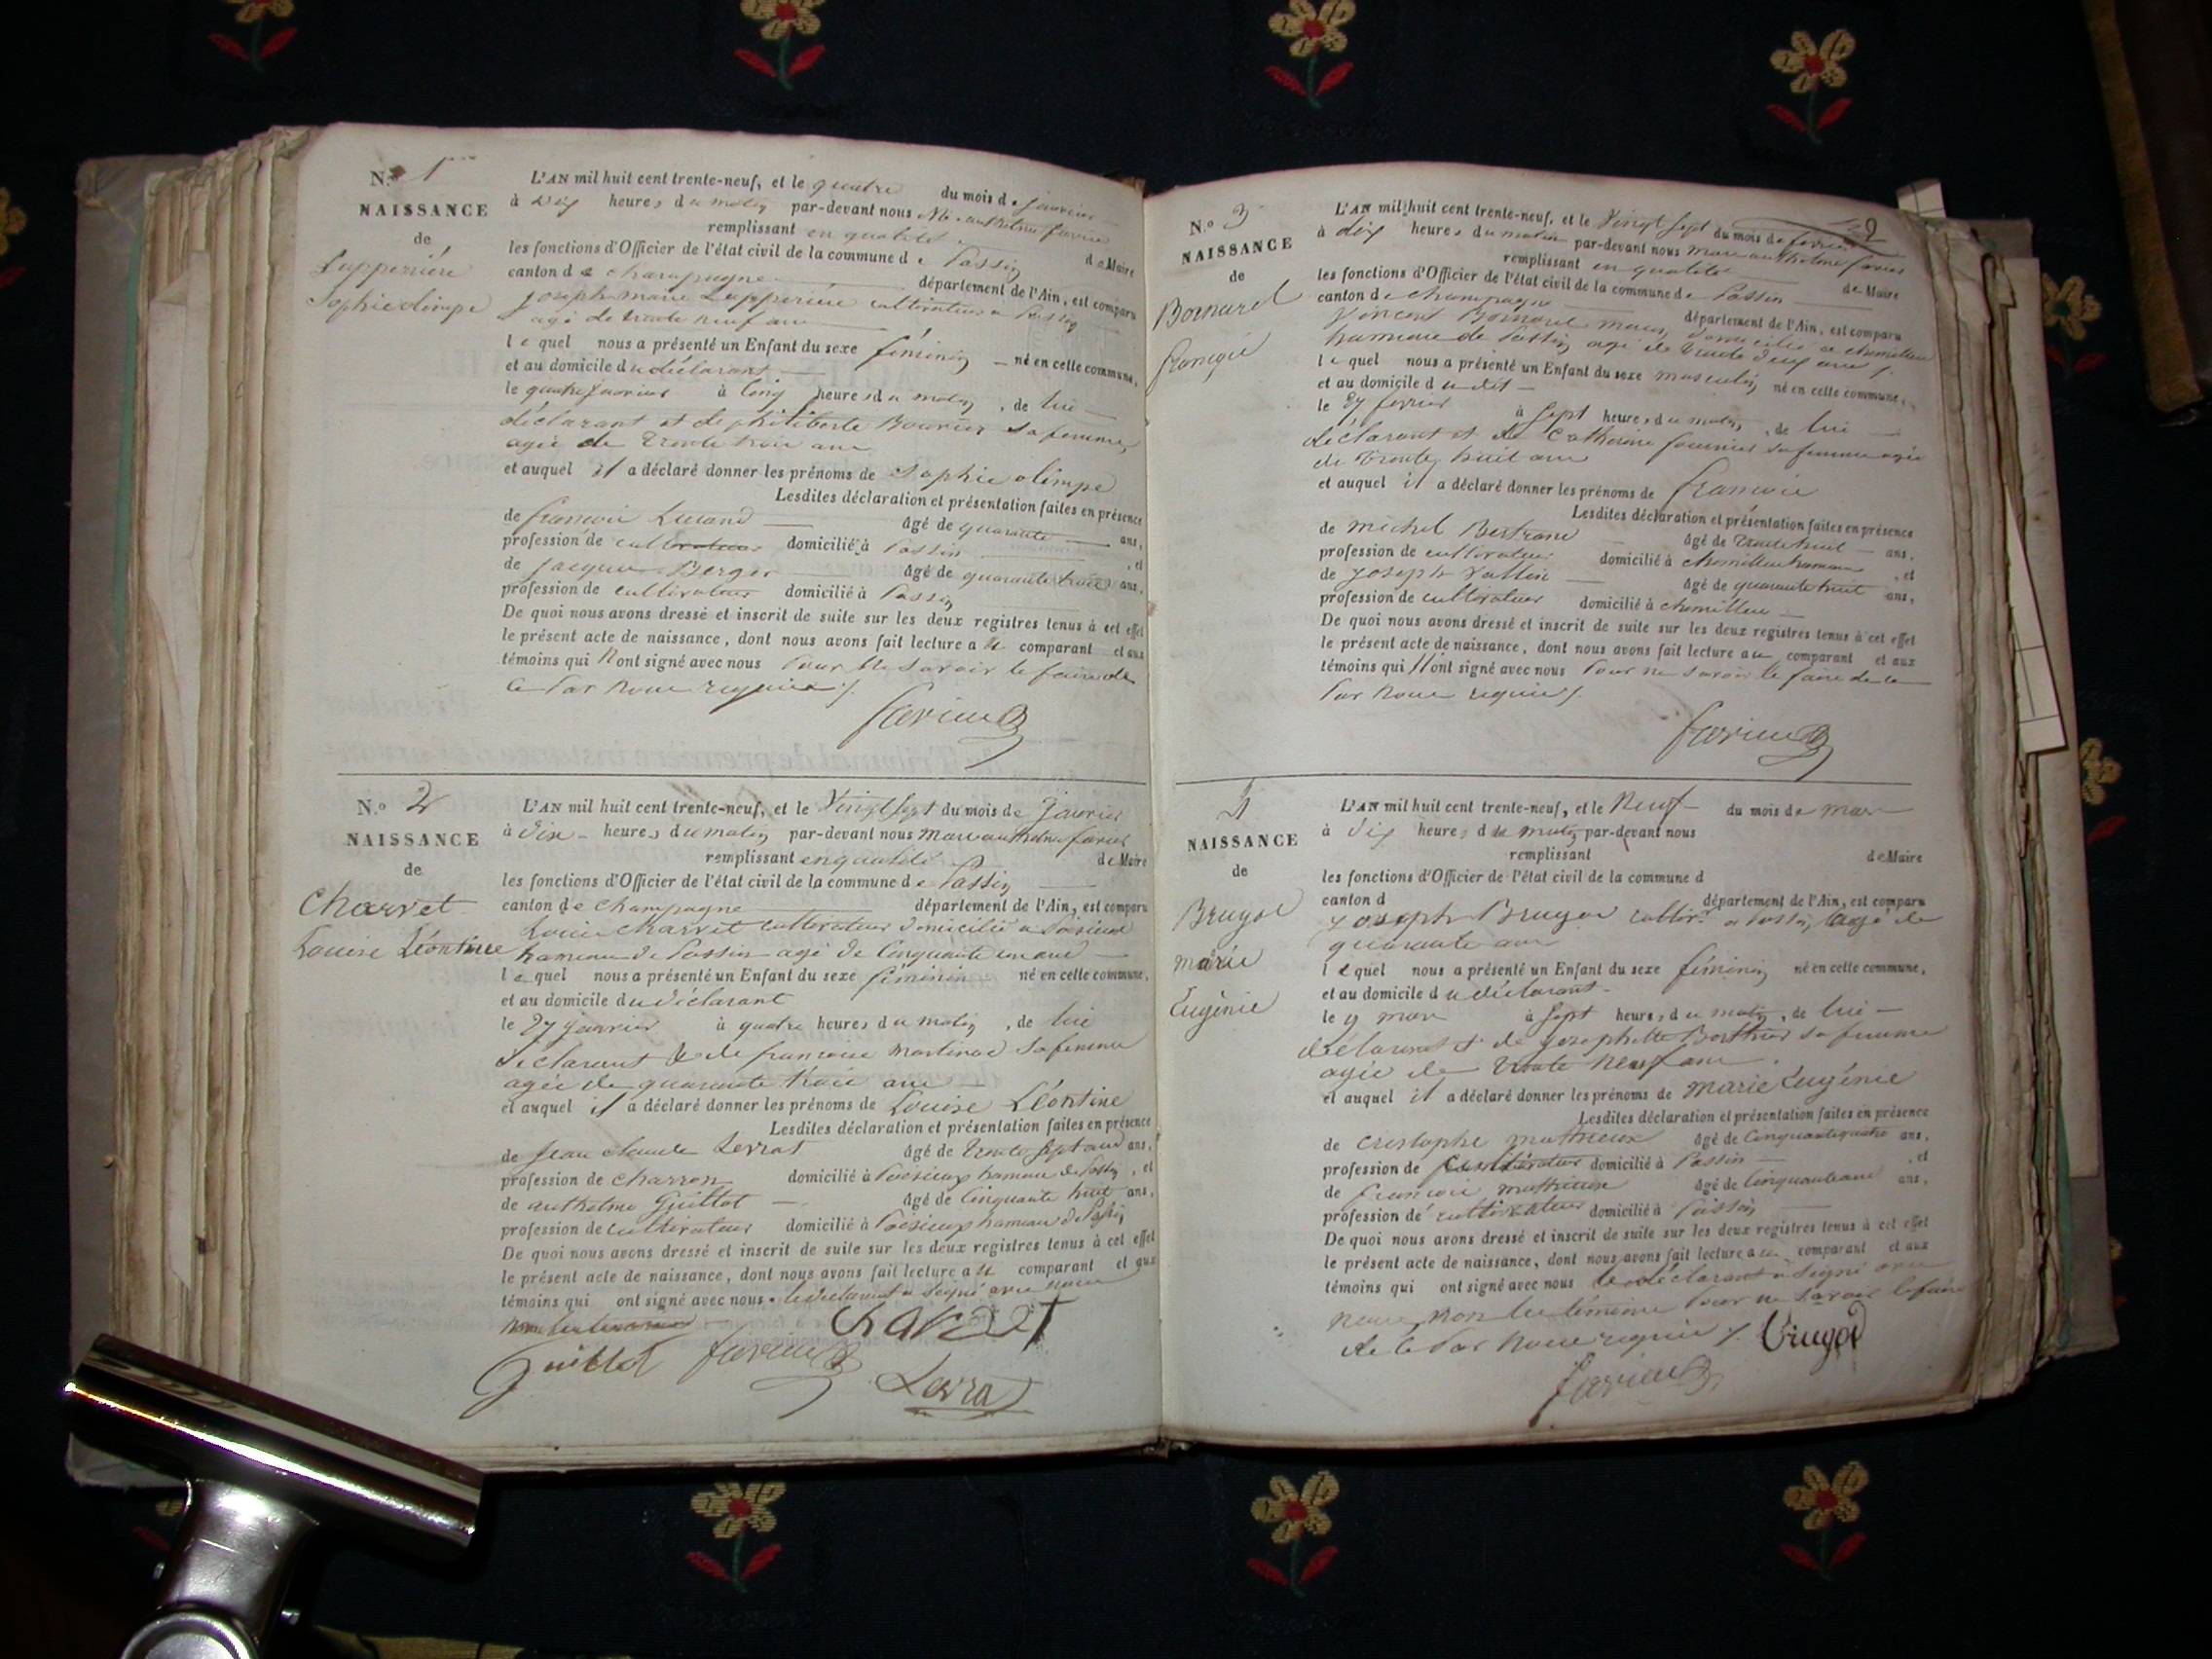 N.o 1
NAISSANCE
de
Lapperière
Sophie olimpe
L'AN mil huit cent trente-neuf, et le quatre du mois de janvier
à dix heures du matin par-devant nous Mc anthelme favier
remplissant en qualité de Maire
les fonctions d'Officier de l'état civil de la commune de Passin
canton de champagne département de l'Ain, est comparu
joseph marie Lapperière cultivateur a Passin
agé de trente neuf ans
lequel nous a présenté un Enfant du sexe féminin né en cette commune,
et au domicile du déclarant
le quatre janvier à cinq heures du matin, de lui
déclarant et de philiberte Bouvier sa femme
agée de trente trois ans
et auquel il a déclaré donner les prénoms de Sophie olimpe
Lesdites déclaration et présentation faites en présence
de françois âgé de quarante ans,
profession de cultivateur domicilié à Passin, et
de jacques Berger âgé de quarante trois ans,
profession de cultivateur domicilié à Passin
De quoi nous avons dressé et inscrit de suite sur les deux registres tenus à cet effet
le présent acte de naissance, dont nous avons fait lecture au comparant et aux
témoins qui n'ont signé avec nous Pour ne savoir le faire de
ce Par nous requis ./.
favier
N.o 2
NAISSANCE
de
Charvet
Louise Léontine
L'AN mil huit cent trente-neuf, et le Vingt Sept du mois de Janvier
à dix heures du matin par-devant nous marc anthelme favier
remplissant en qualité de Maire
les fonctions d'Officier de l'état civil de la commune de Passin
canton de champagne département de l'Ain, est comparu
Louis charvet cultivateur domicilié a Poisieux
hameau de Passin agé de Cinquante un ans
lequel nous a présenté un Enfant du sexe féminin né en cette commune,
et au domicile du déclarant
le 27 janvier à quatre heures du matin, de lui
déclarant & de françoise martinod sa femme
agée de quarante trois ans
et auquel il a déclaré donner les prénoms de Louise Léontine
Lesdites déclaration et présentation faites en présence
de Jean claude Lerrat âgé de trente sept ans ans,
profession de charron domicilié à Poisieux hameau de Passin, et
de anthelme Guillot âgé de Cinquante huit ans,
profession de cultivateur domicilié à Poisieux hameau de Passin
De quoi nous avons dressé et inscrit de suite sur les deux registres tenus à cet effet
le présent acte de naissance, dont nous avons fait lecture au comparant et aux
témoins qui ont signé avec nous. le déclarant a Signé avec nous
ChARVET
Guillot favier Lerrat
2
N.o 3
NAISSANCE
de
Bornarel
françois
L'AN mil huit cent trente-neuf, et le Vingt Sept du mois de fevrier
à dix heures du matin par-devant nous marc anthelme favier
remplissant en qualité de Maire
les fonctions d'Officier de l'état civil de la commune de Passin
canton de champagne département de l'Ain, est comparu
Vincent Bornarel maçon domicilié a chemillieu
hameau de Passin agé de trente deux ans ./.
lequel nous a présenté un Enfant du sexe masculin né en cette commune,
et au domicile du dit
le 27 fevrier à Sept heures du matin, de lui
déclarant et de Catherine fournier sa femme agée
de trente huit ans
et auquel il a déclaré donner les prénoms de françois
Lesdites déclaration et présentation faites en présence
de michel Bertrand âgé de trente huit ans,
profession de cultivateur domicilié à chemillieu hameau, et
de joseph Vallin âgé de quarante huit ans,
profession de cultivateur domicilié à chemillieu
De quoi nous avons dressé et inscrit de suite sur les deux registres tenus à cet effet
le présent acte de naissance, dont nous avons fait lecture au comparant et aux
témoins qui n'ont signé avec nous Pour ne savoir le faire de ce
Par nous requis ./.
favier
4
NAISSANCE
de
Brugod
marie
Eugénie
L'AN mil huit cent trente-neuf, et le Neuf du mois de mars
à dix heures du matin par-devant nous
remplissant de Maire
les fonctions d'Officier de l'état civil de la commune d
canton d département de l'Ain, est comparu
joseph Brugod cultivr a Passin agé de
quarante ans
lequel nous a présenté un Enfant du sexe féminin né en cette commune,
et au domicile du déclarant
le 9 mars à Sept heures du matin, de lui
déclarant & de josephette Berthier sa femme
agée de trente neuf ans.
et auquel il a déclaré donner les prénoms de marie Eugénie
Lesdites déclaration et présentation faites en présence
de cristophe mathieux âgé de Cinquante quatre ans,
profession de cultivateur domicilié à Passin, et
de françois mathieux âgé de Cinquante ans ans,
profession de cultivateur domicilié à Passin
De quoi nous avons dressé et inscrit de suite sur les deux registres tenus à cet effet
le présent acte de naissance, dont nous avons fait lecture au comparant et aux
témoins qui ont signé avec nous le déclarant a Signé avec
nous non les témoins Pour ne Savoir le faire
de ce Par nous requis ./. Brugod
favier